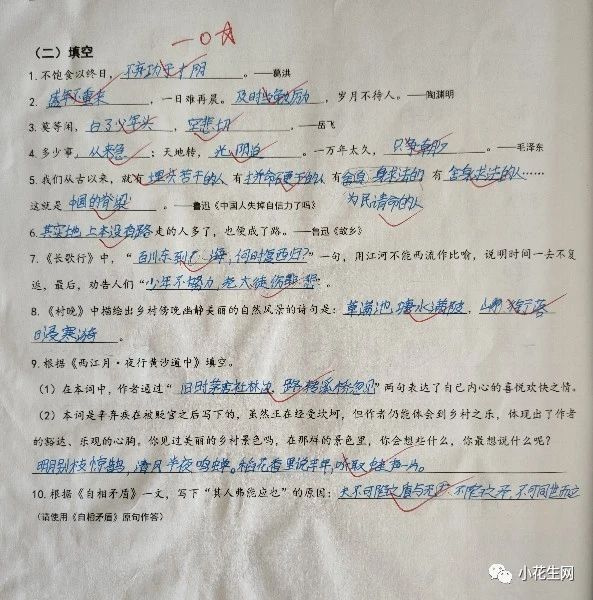 一〇☆
(二) 填空
1. 不饱食以终日, 不弃功于寸阴。——葛洪
2. 盛年不重来, 一日难再晨。及时当勉励, 岁月不待人。——陶渊明
3. 莫等闲, 白了少年头, 空悲切。——岳飞
4. 多少事, 从来急; 天地转, 光阴迫。一万年太久, 只争朝夕。——毛泽东
5. 我们从古以来, 就有埋头苦干的人 有拼命硬干的人 有舍身求法的 有舍身求法的人……
这就是 中国的脊梁。——鲁迅《中国人失掉自信力了吗》 为民请命的人
6. 其实地上本没有路 走的人多了, 也便成了路。——鲁迅《故乡》
7. 《长歌行》中, “百川东到海, 何时复西归?”一句, 用江河不能西流作比喻, 说明时间一去不复
返, 最后, 劝告人们“少年不努力, 老大徒伤悲”。
8. 《村晚》中描绘出乡村傍晚幽静美丽的自然风景的诗句是: 草满池塘水满陂, 山衔落
日浸寒漪。
9. 根据《西江月·夜行黄沙道中》填空。
(1) 在本词中, 作者通过“旧时茅店社林边, 路转溪桥忽见”两句表达了自己内心的喜悦欢快之情。
(2) 本词是辛弃疾在被贬官之后写下的, 虽然正在经受坎坷, 但作者仍能体会到乡村之乐, 体现出了作者
的豁达、乐观的心胸, 你见过美丽的乡村景色吗, 在那样的景色里, 你会想些什么, 你最想说什么呢?
明月别枝惊鹊, 清风半夜鸣蝉。稻花香里说丰年, 听取蛙声一片。
10. 根据《自相矛盾》一文, 写下“其人弗能应也”的原因: 夫不可陷之盾与无不陷之矛, 不可同世而立
(请使用《自相矛盾》原句作答)
小花生网